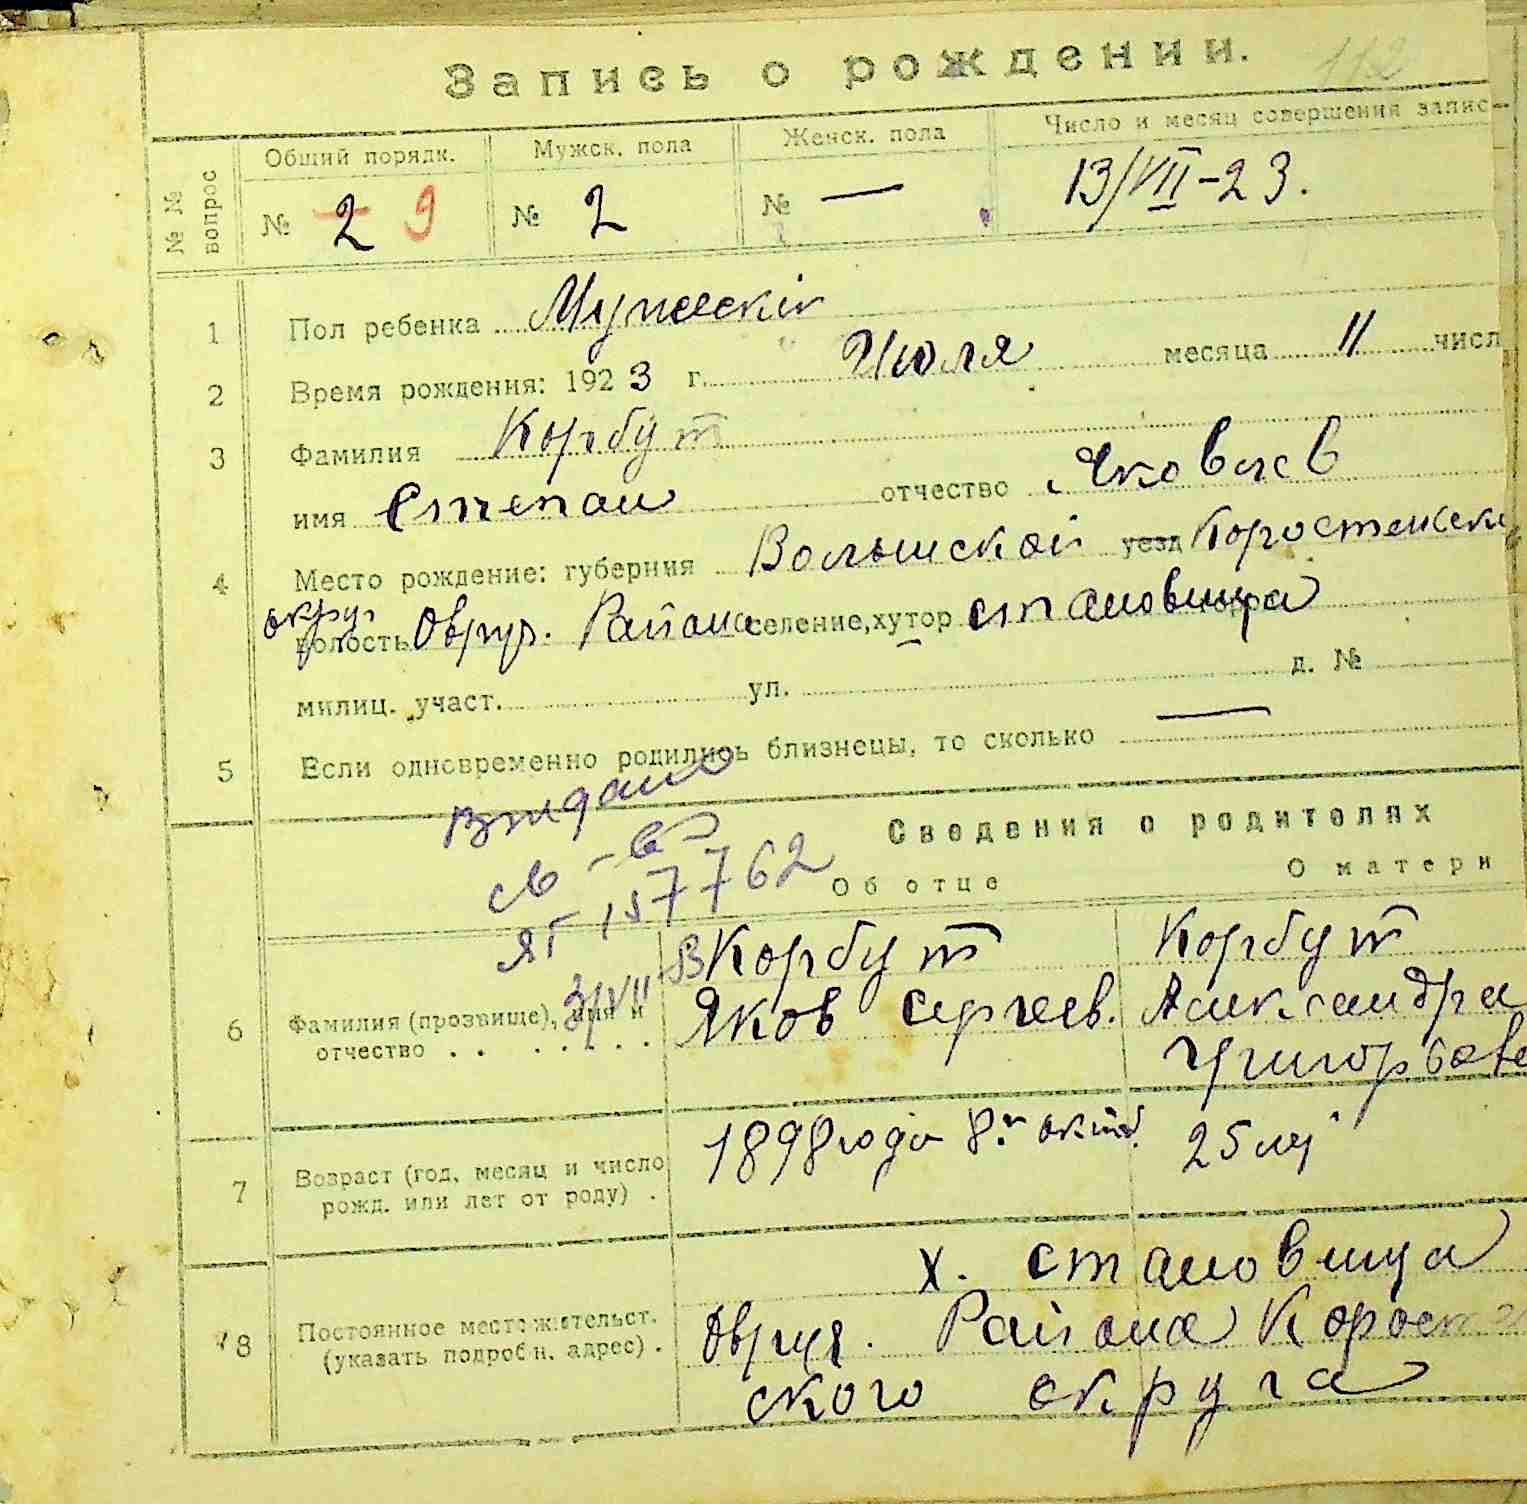 Запись о рождении. 112
№ № вопрос
Общий порядк. Мужск. пола Женск. пола Число и месяц совершения запис-
№ 2 9 № 2 № — 13/VII-23.
1 Пол ребенка Мужескій
2 Время рождения: 1923 г. Июля месяца 11 числ
3 Фамилия Корбут
имя Степан отчество Яковлев
4 Место рождение: губерния Волынской уезд Коростенск
округ
волость Овруч. Района селение, хутор Становища
милиц. участ. ул. д. №
5 Если одновременно родились близнецы, то сколько —
Выдано
св-во
ЯГ 157762
3/VII
Сведения о родителях
Об отце О матери
Корбут Корбут
6 Фамилия (прозвище), имя и Яков Сергеев. Александра
отчество . . . . . . . Григорьев
7 Возраст (год, месяц и число 1898 года 8го октяб. 25 лет
рожд. или лет от роду) .
х. Становища
8 Постоянное местожительст. Овруч. Района Корост
(указать подробн. адрес) .
ского округа